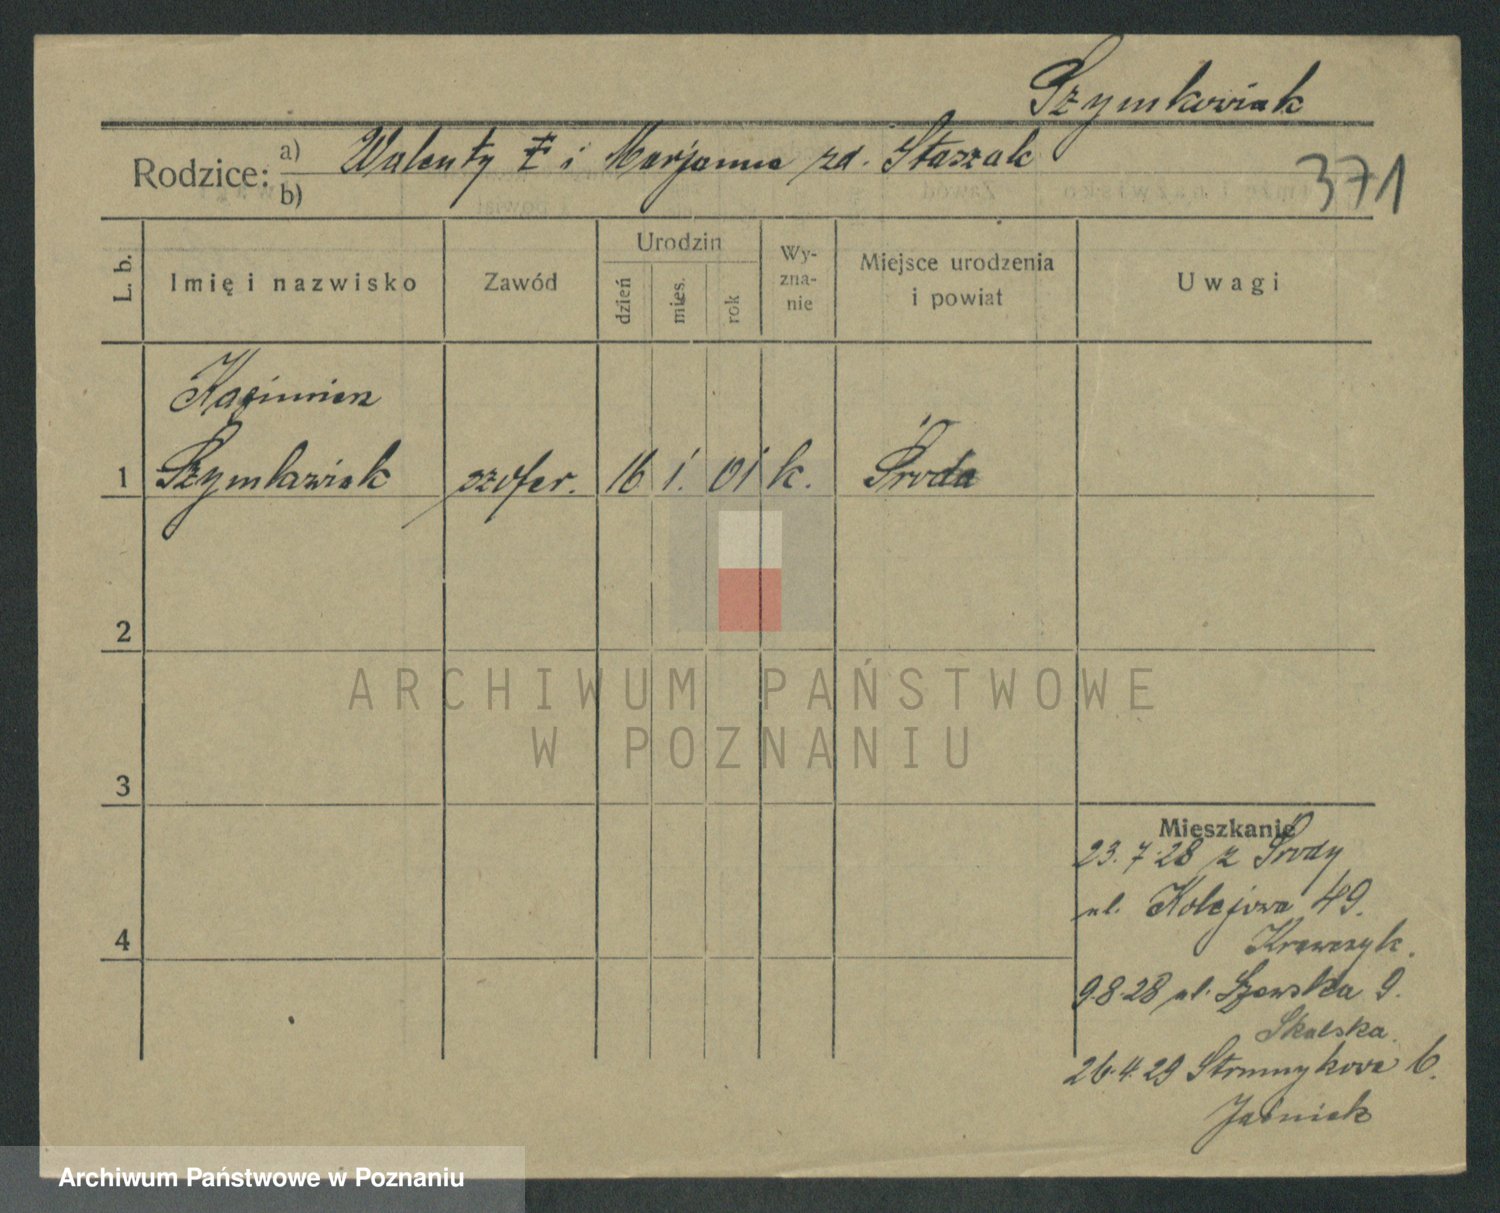 Szymkowiak
Rodzice: a) b) Walenty i Marjanna zd. Staszak
371
L. b.
Imię i nazwisko
Zawód
Urodzin
dzień
mies.
rok
Wy-
zna-
nie
Miejsce urodzenia
i powiat
Uwagi
Kazimierz
1 Szymkowiak szofer. 16 1. 01 k. Środa
2
3
4
Mieszkanie
23.7.28 z Środy
ul. Kolejowa 49.
Krawczyk.
9.8.28 ul. Szewska 9.
Skalska.
26.4.29 Strumykowa 6.
Jaśniak
ARCHIWUM PAŃSTWOWE
W POZNANIU
Archiwum Państwowe w Poznaniu